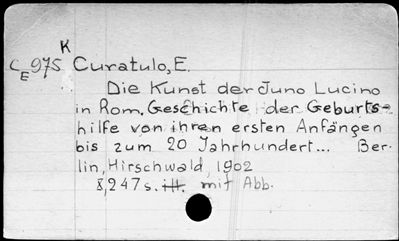 K
C_E 975 Curatulo, E.
Die Kunst der Juno Lucino
in Rom. Geschichte der Geburts-
hilfe von ihren ersten Anfängen
bis zum 20 Jahrhundert... Ber-
lin, Hirschwald, 1902
8,247 s. ill. mit Abb.